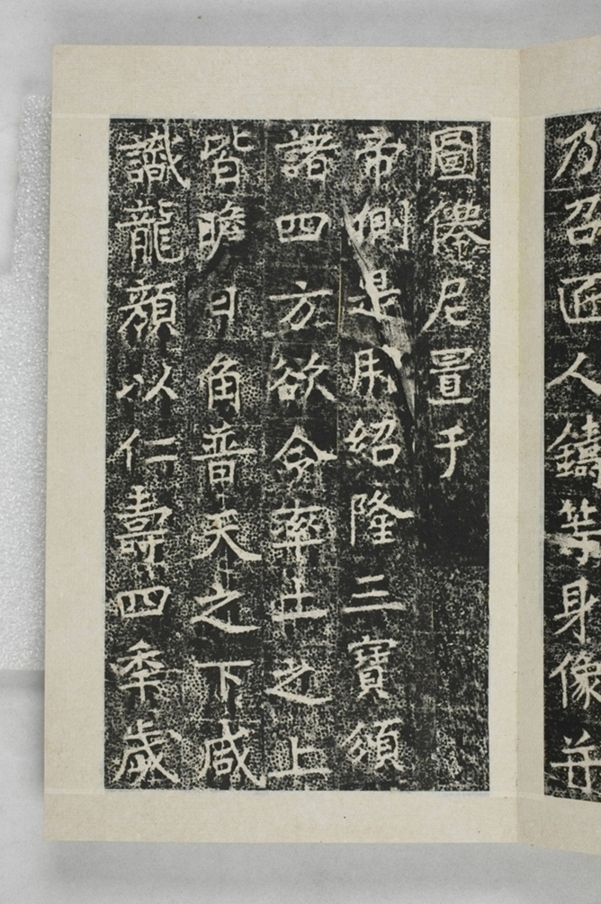 乃召匠人鑄等身像并
圖僊尼置于
帝側是用紹隆三寶頒
諸四方欲令率土之上
皆瞻日角普天之下咸
識龍顏以仁壽四季歲